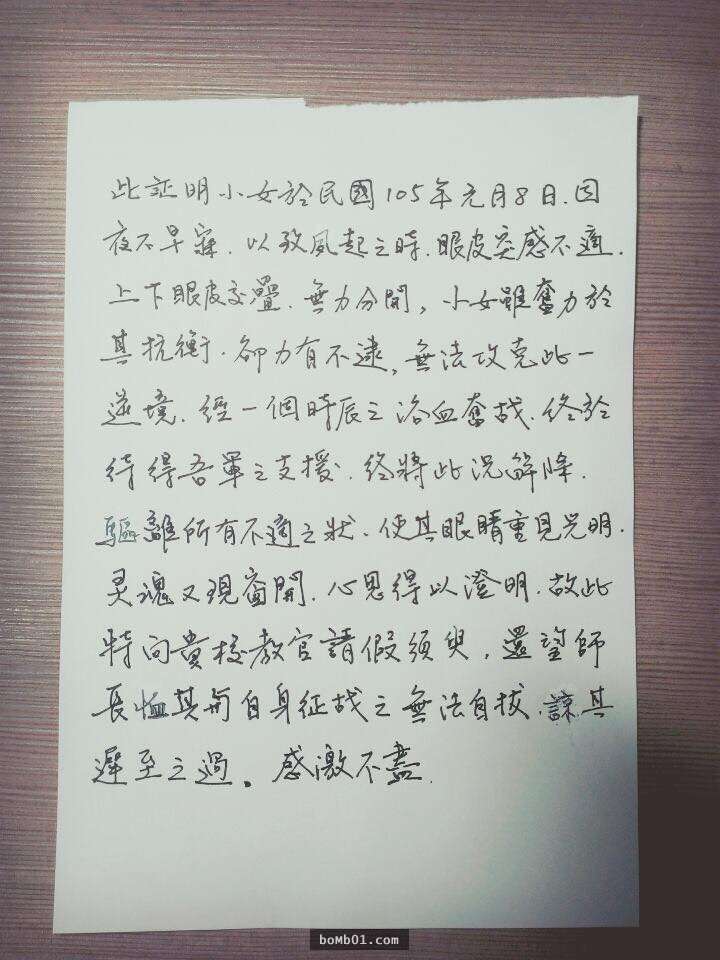 此証明小女於民國105年元月8日.因
夜不早寐.以致風起之時.眼皮突感不適.
上下眼皮交疊 無力分開，小女雖奮力於
其抗衡.卻力有不逮，無法攻克此一
逆境.經一個時辰之浴血奮战.終於
待得吾軍之支援.終將此況解降.
驅離所有不適之狀.使其眼睛重見光明.
灵魂又現窗開.心思得以澄明.故此
特向貴校教官請假須臾，還望師
長恤其 自身征战之無法自拔.諒其
遲至之過。感激不盡.
boMb01.com